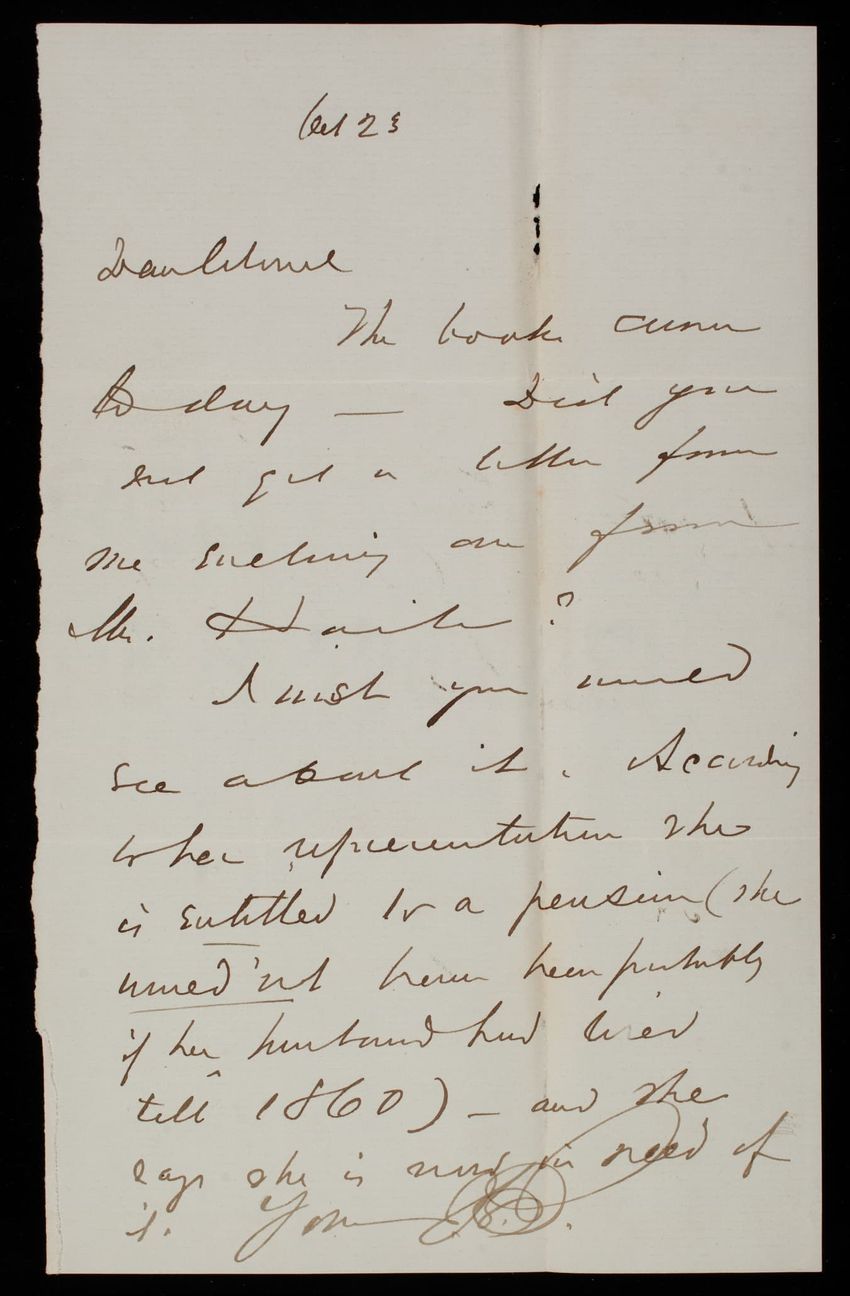 Oct 23
Dear Colonel
The books came
to day — Did you
not get a letter from
me enclosing one from
Mr. ?
I wish you would
see about it. According
to her representation she
is entitled to a pension (she
would'nt have been probably
if her husband had lived
till 1860) — and she
says she is now in need of
it. Yours